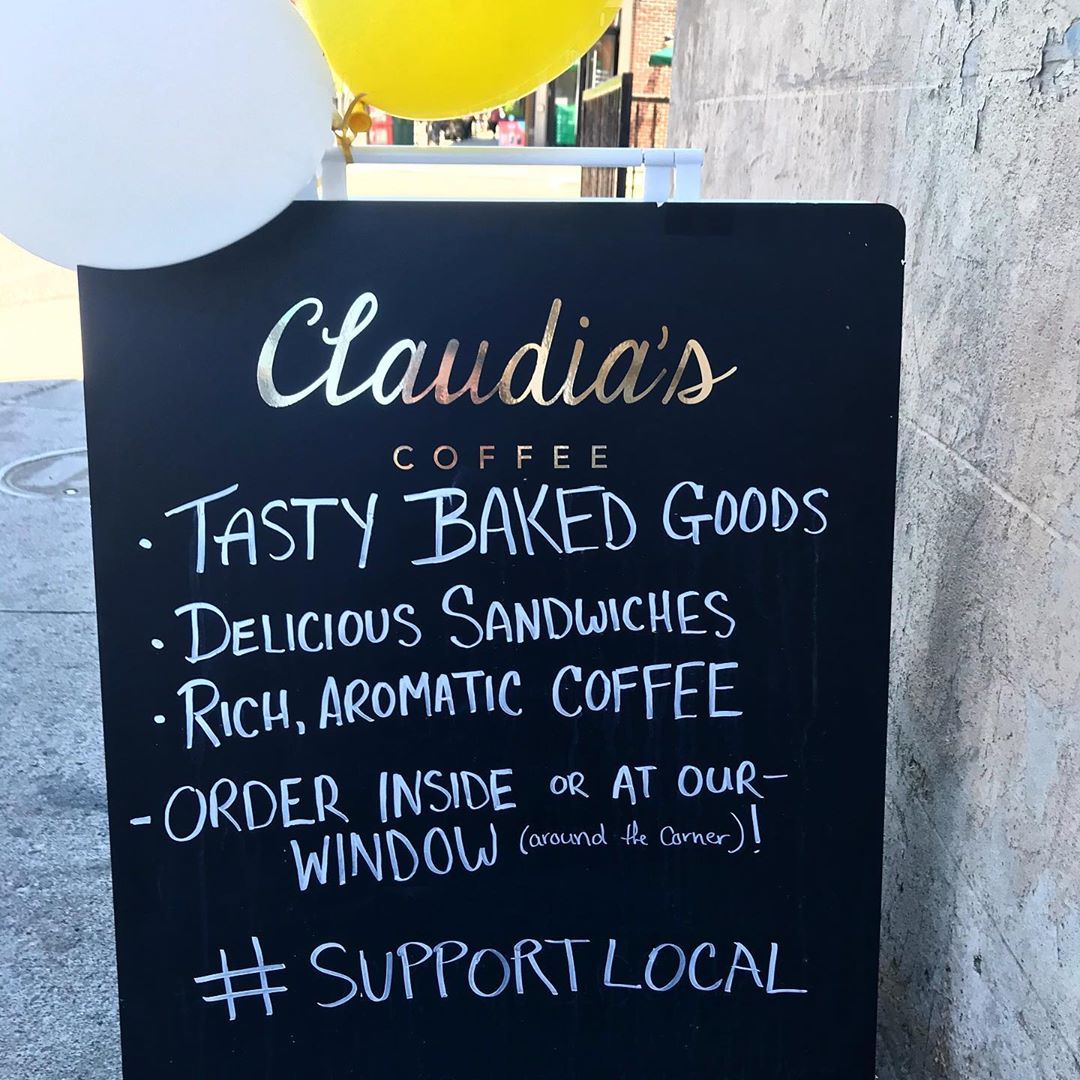 Claudia's
COFFEE
· TASTY BAKED GOODS
· DELICIOUS SANDWICHES
· RICH, AROMATIC COFFEE
- ORDER INSIDE OR AT OUR -
WINDOW (around the Corner)!
# SUPPORT LOCAL